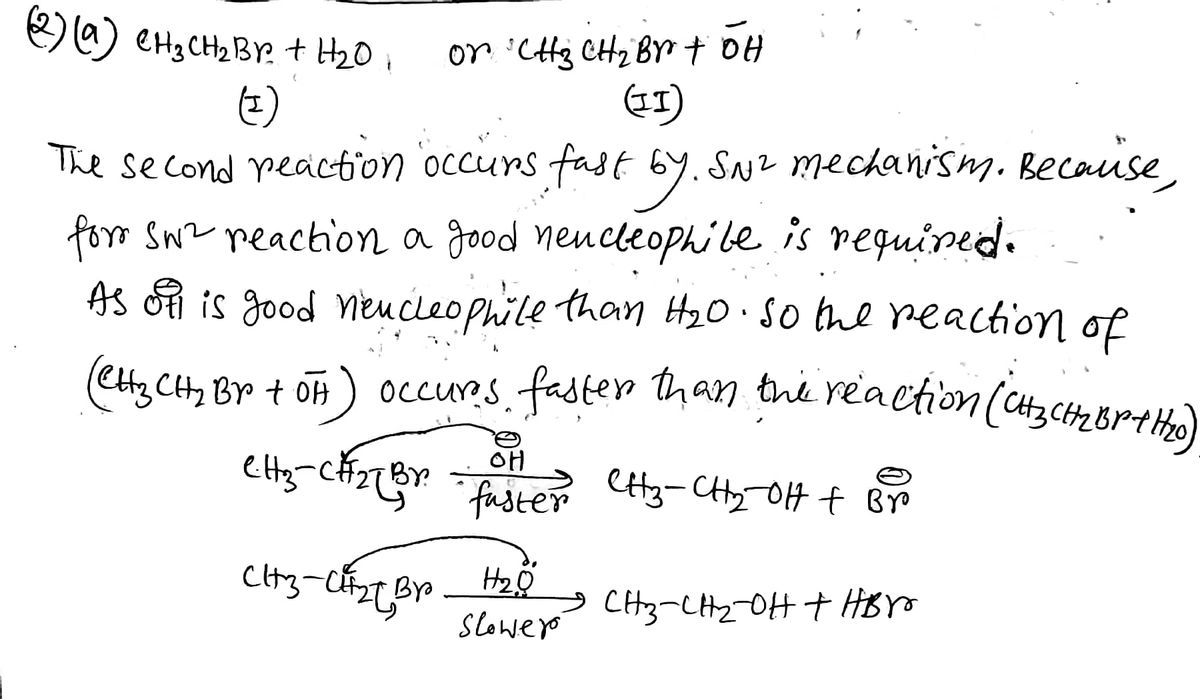 (2)(a) CH3CH2Br + H2O, or CH3CH2Br + ŌH
(I) (II)
The second reaction occurs fast by SN2 mechanism. Because,
for SN2 reaction a good neucleophile is required.
As ⊖OH is good neucleophile than H2O. So the reaction of
(CH3CH2Br + ŌH) occurs faster than the reaction (CH3CH2Br+H2O)
CH3-CH2-Br ⊖OH faster → CH3-CH2-OH + ⊖Br
CH3-CH2-Br H2Ö slower → CH3-CH2-OH + HBr